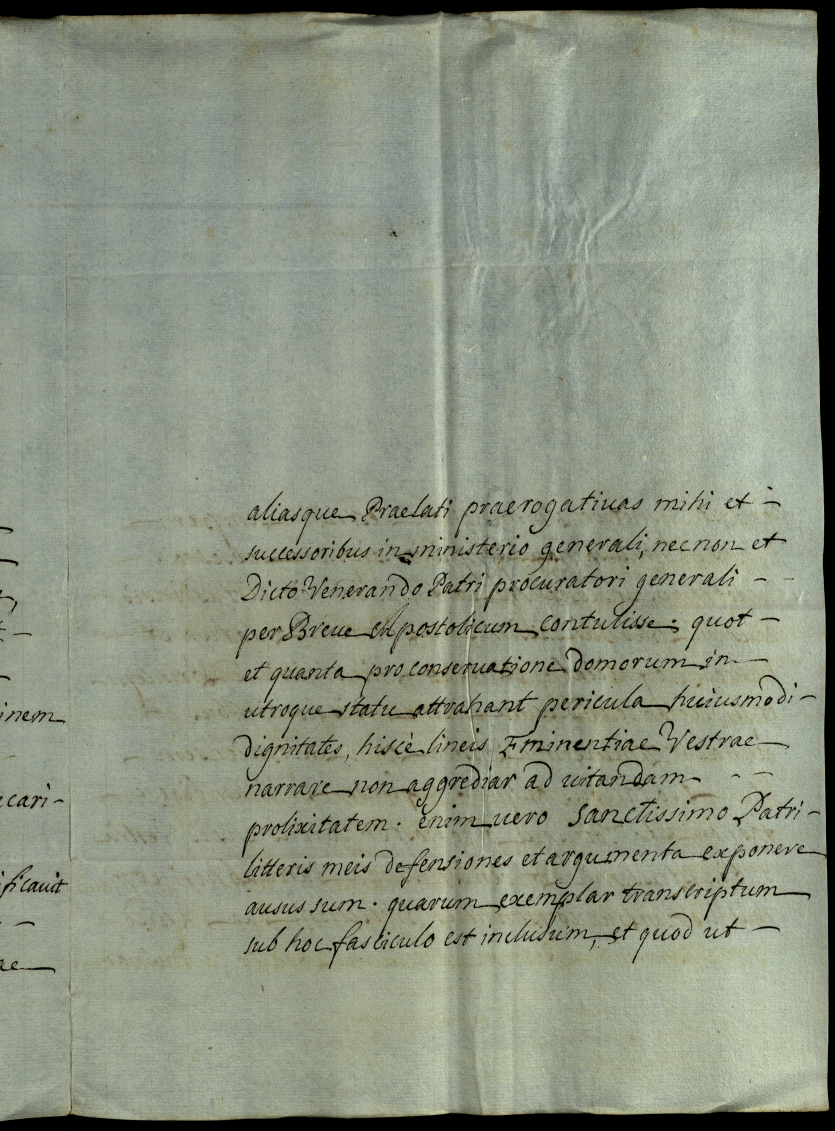 inem
cari-
ificavit
ae
aliasque Praelati praerogativas mihi et -
successoribus in ministerio generali, nec non et
Dicto Venerando Patri procuratori generali -
per Breve Apostolicum contulisse. quot -
et quanta pro conservatione domorum in -
utroque statu attrahant pericula huiusmodi -
dignitates, hisce lineis Eminentiae Vestrae
narrare non aggrediar ad vitandam - -
prolixitatem. enim vero Sanctissimo Patri -
litteris meis defensiones et argumenta exponere
ausus sum. quarum exemplar transcriptum
sub hoc fasciculo est inclusum, et quod ut -